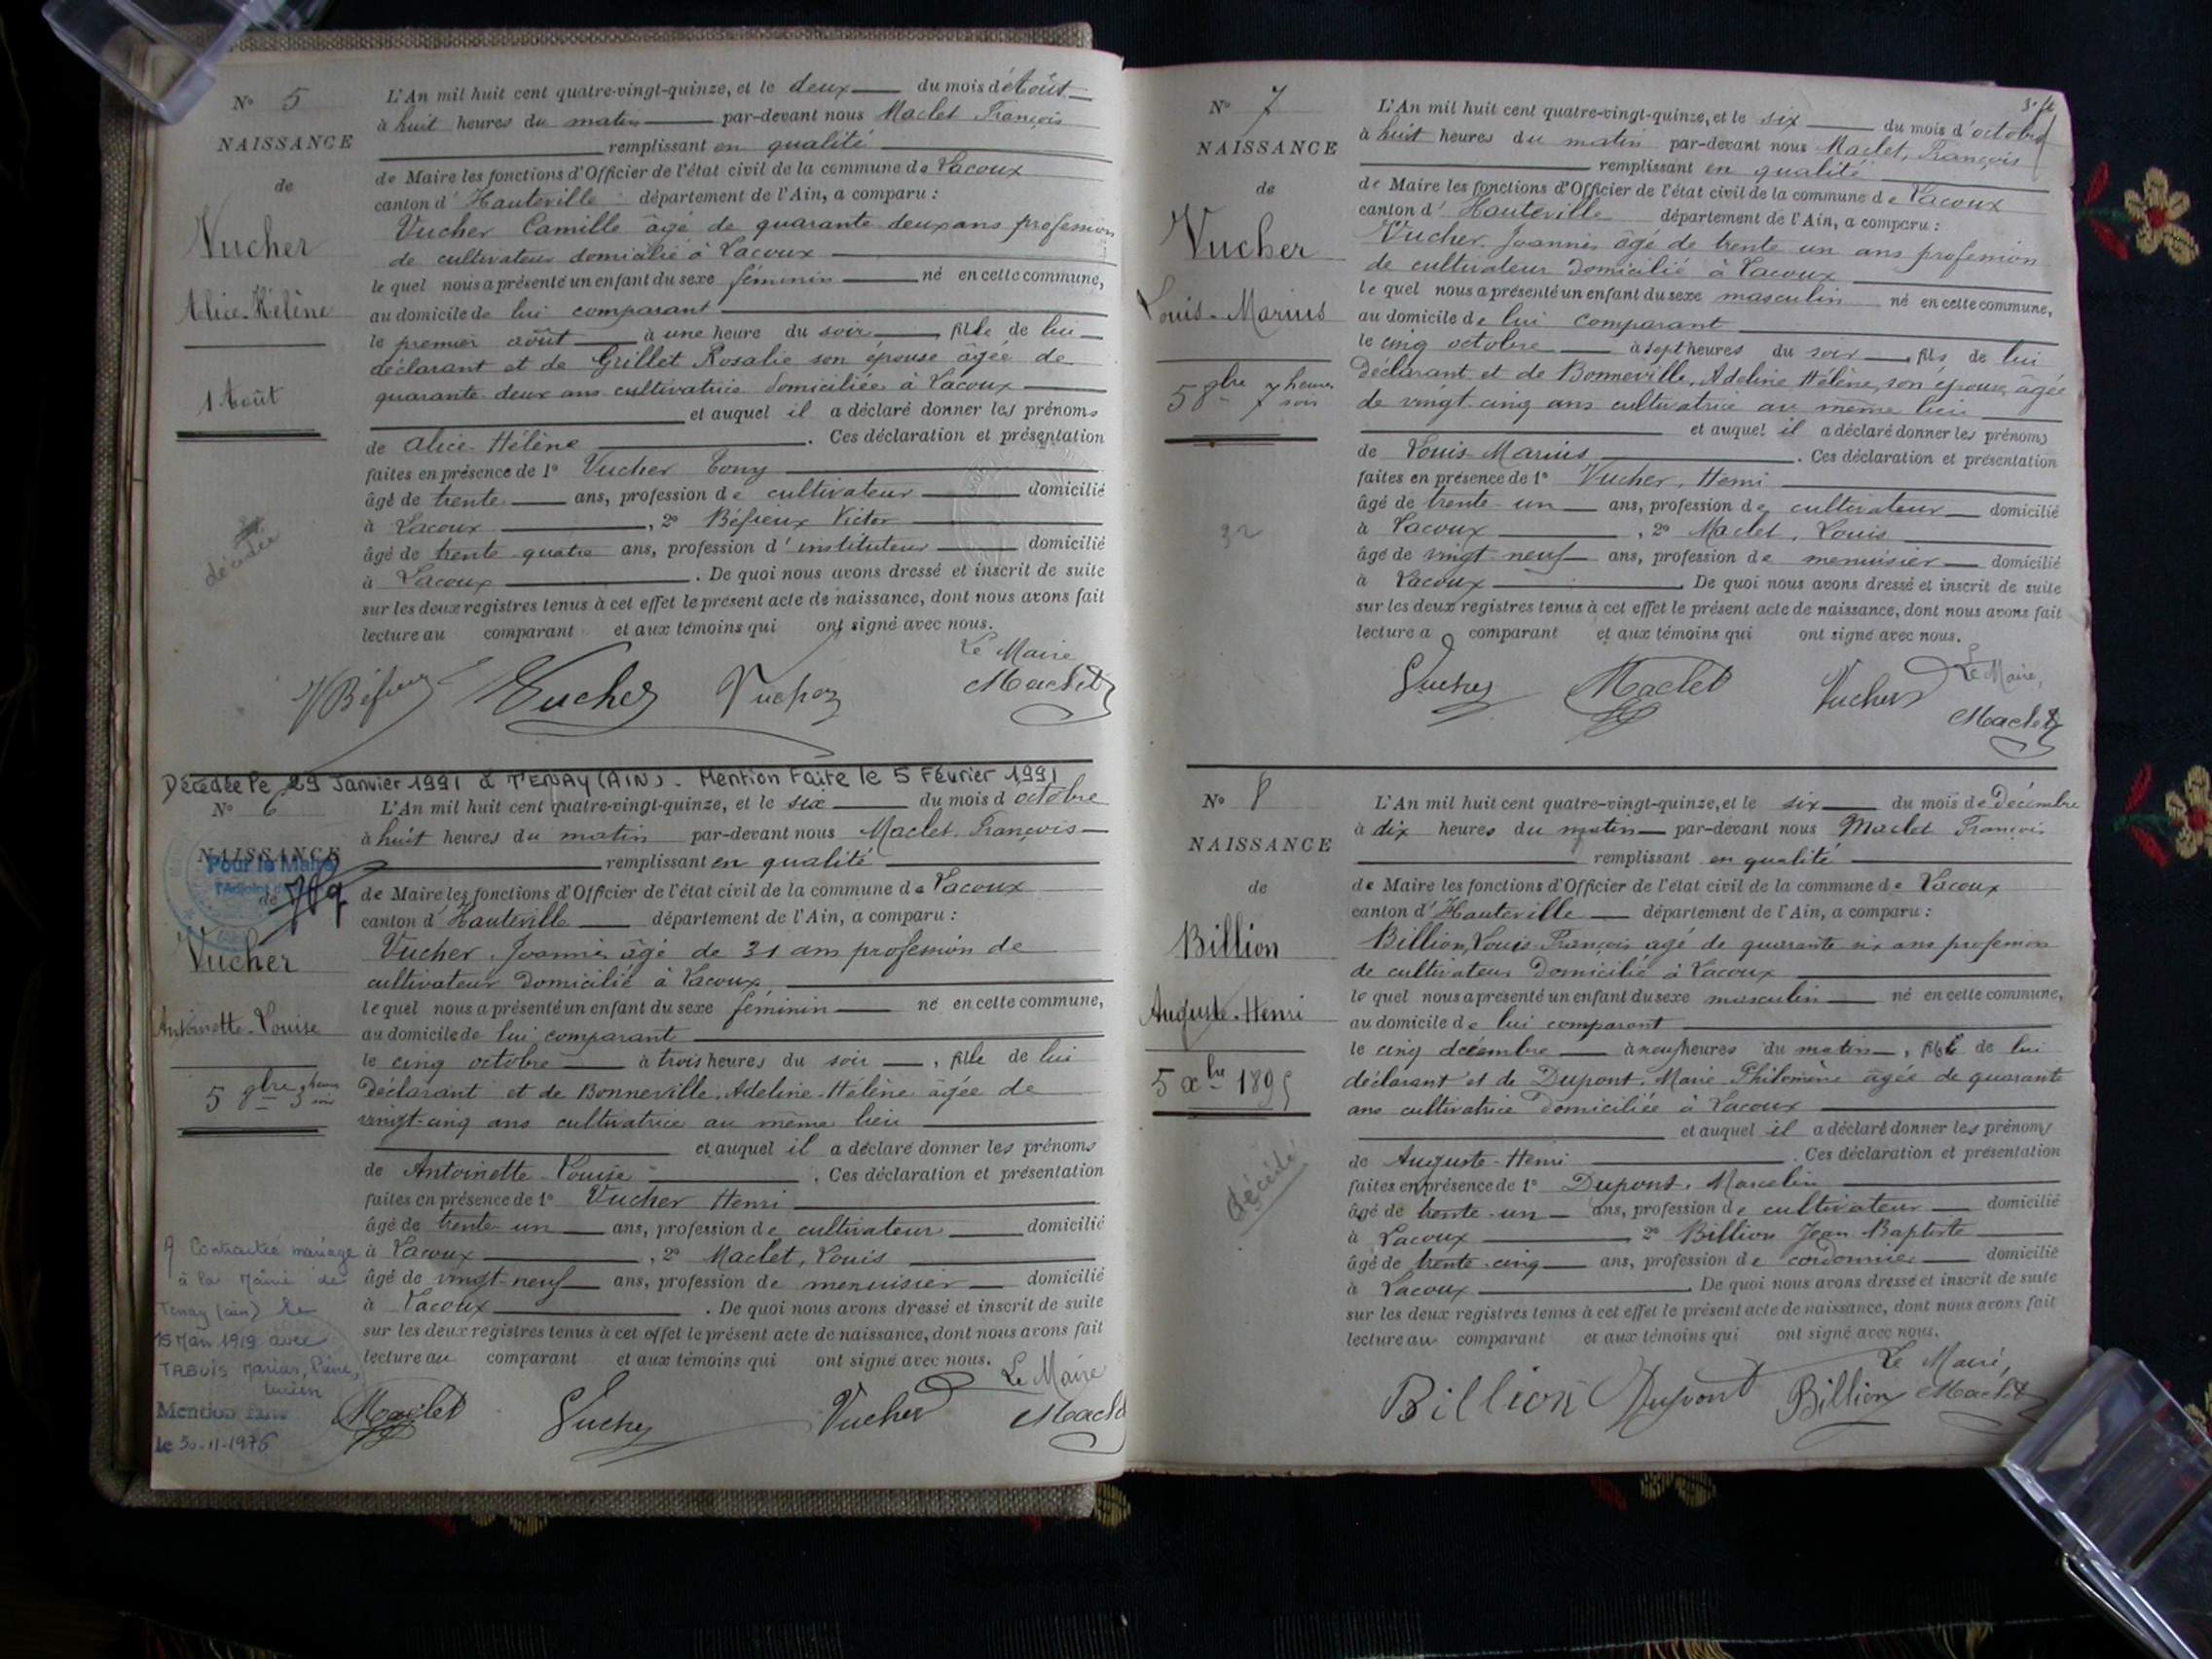 N° 5
NAISSANCE
de
Vucher
Alice-Hélène
1 Août
décédée
L'An mil huit cent quatre-vingt-quinze, et le deux du mois d'Août
à huit heures du matin par-devant nous Maclet François
remplissant en qualité
de Maire les fonctions d'Officier de l'état civil de la commune de Lacoux
canton d'Hauteville département de l'Ain, a comparu :
Vucher Camille âgé de quarante deux ans profession
de cultivateur domicilié à Lacoux
le quel nous a présenté un enfant du sexe féminin né en cette commune,
au domicile de lui comparant
le premier août à une heure du soir, fille de lui
déclarant et de Grillet Rosalie son épouse âgée de
quarante deux ans cultivatrice domiciliée à Lacoux
et auquel il a déclaré donner les prénoms
de Alice-Hélène. Ces déclaration et présentation
faites en présence de 1° Vucher Tony
âgé de trente ans, profession de cultivateur domicilié
à Lacoux, 2° Béfieux Victor
âgé de trente quatre ans, profession d'instituteur domicilié
à Lacoux. De quoi nous avons dressé et inscrit de suite
sur les deux registres tenus à cet effet le présent acte de naissance, dont nous avons fait
lecture au comparant et aux témoins qui ont signé avec nous.
Le Maire
Vucher Vucher Maclet
Décédée le 29 Janvier 1991 à TENAY (AIN). Mention Faite le 5 Février 1991
N° 6
NAISSANCE
Pour le Maire
de
Vucher
Antoinette-Louise
5 8bre 3 heures soir
A Contracté mariage
à la Mairie de
Tenay (ain) le
15 Mars 1919 avec
TABUIS Marius, Pierre,
Lucien
Mention faite
le 30-11-1976
L'An mil huit cent quatre-vingt-quinze, et le six du mois d'octobre
à huit heures du matin par-devant nous Maclet François
remplissant en qualité
de Maire les fonctions d'Officier de l'état civil de la commune de Lacoux
canton d'Hauteville département de l'Ain, a comparu :
Vucher Joannis âgé de 31 ans profession de
cultivateur domicilié à Lacoux
le quel nous a présenté un enfant du sexe féminin né en cette commune,
au domicile de lui comparant
le cinq octobre à trois heures du soir, fille de lui
déclarant et de Bonneville, Adeline-Hélène âgée de
vingt-cinq ans cultivatrice au même lieu
et auquel il a déclaré donner les prénoms
de Antoinette-Louise. Ces déclaration et présentation
faites en présence de 1° Vucher Henri
âgé de trente-un ans, profession de cultivateur domicilié
à Lacoux, 2° Maclet, Louis
âgé de vingt-neuf ans, profession de menuisier domicilié
à Lacoux. De quoi nous avons dressé et inscrit de suite
sur les deux registres tenus à cet effet le présent acte de naissance, dont nous avons fait
lecture au comparant et aux témoins qui ont signé avec nous.
Le Maire
Maclet Vucher Vucher Maclet
N° 7
NAISSANCE
de
Vucher
Louis-Marius
5 8bre 7 heures soir
32
L'An mil huit cent quatre-vingt-quinze, et le six du mois d'octobre
à huit heures du matin par-devant nous Maclet, François
remplissant en qualité
de Maire les fonctions d'Officier de l'état civil de la commune de Lacoux
canton d'Hauteville département de l'Ain, a comparu :
Vucher, Joannis âgé de trente un ans profession
de cultivateur domicilié à Lacoux
le quel nous a présenté un enfant du sexe masculin né en cette commune,
au domicile de lui comparant
le cinq octobre à sept heures du soir, fils de lui
déclarant et de Bonneville, Adeline Hélène, son épouse, âgée
de vingt-cinq ans cultivatrice au même lieu
et auquel il a déclaré donner les prénoms
de Louis-Marius. Ces déclaration et présentation
faites en présence de 1° Vucher, Henri
âgé de trente-un ans, profession de cultivateur domicilié
à Lacoux, 2° Maclet, Louis
âgé de vingt neuf ans, profession de menuisier domicilié
à Lacoux. De quoi nous avons dressé et inscrit de suite
sur les deux registres tenus à cet effet le présent acte de naissance, dont nous avons fait
lecture a comparant et aux témoins qui ont signé avec nous.
Le Maire,
Vucher Maclet Vucher Maclet
N° 8
NAISSANCE
de
Billion
Auguste-Henri
5 xbre 1895
décédé
L'An mil huit cent quatre-vingt-quinze, et le six du mois de Décembre
à dix heures du matin par-devant nous Maclet François
remplissant en qualité
de Maire les fonctions d'Officier de l'état civil de la commune de Lacoux
canton d'Hauteville département de l'Ain, a comparu :
Billion, Louis-François âgé de quarante six ans profession
de cultivateur domicilié à Lacoux
le quel nous a présenté un enfant du sexe masculin né en cette commune,
au domicile de lui comparant
le cinq décembre à neuf heures du matin, fils de lui
déclarant et de Dupont, Marie Philomène âgée de quarante
ans cultivatrice domiciliée à Lacoux
et auquel il a déclaré donner les prénoms
de Auguste-Henri. Ces déclaration et présentation
faites en présence de 1° Dupont, Marcelin
âgé de trente-un ans, profession de cultivateur domicilié
à Lacoux 2° Billion Jean-Baptiste
âgé de trente-cinq ans, profession de cordonnier domicilié
à Lacoux. De quoi nous avons dressé et inscrit de suite
sur les deux registres tenus à cet effet le présent acte de naissance, dont nous avons fait
lecture au comparant et aux témoins qui ont signé avec nous.
Le Maire,
Billion Dupont Billion Maclet